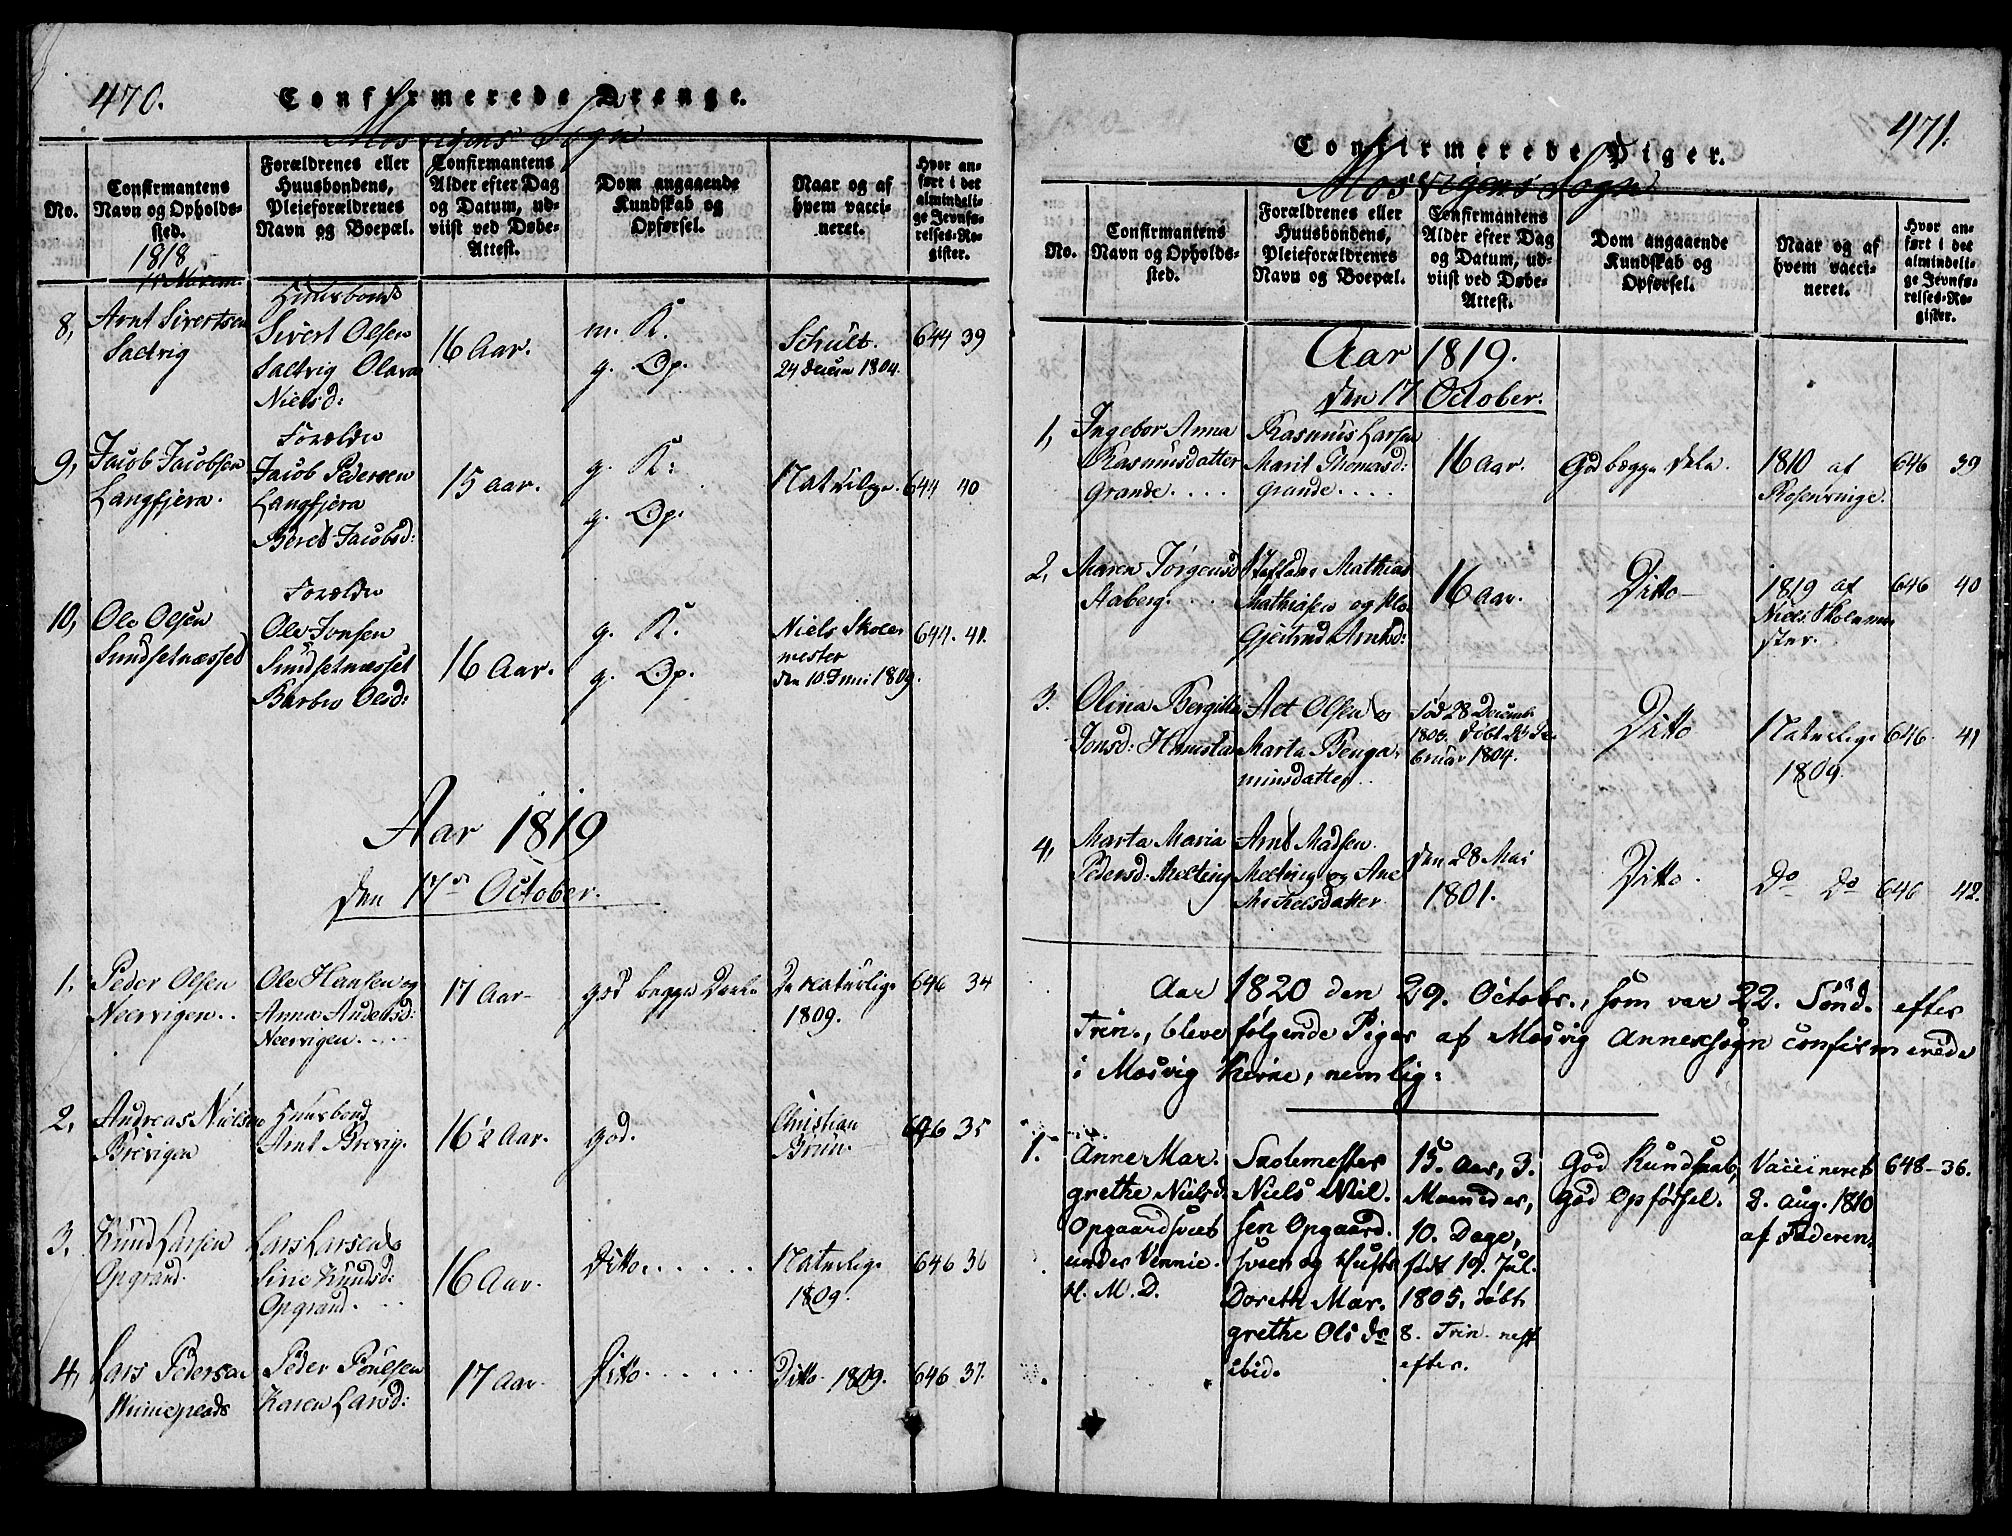 470.
Confirmerede Drenge.
Mosvigens Sogn
No.
Confirmantens Navn og Opholds-
sted.
Forældrenes eller
Huusbondens,
Pleieforældrenes
Navn og Boepæl.
Confirmantens
Alder efter Dag
og Datum, ud-
viist ved Døbe-
Attest.
Dom angaaende
Kundskab og
Opførsel.
Naar og af
hvem vacci-
neret.
Hvor an-
ført i det
almindeli-
ge Jevnfø-
relses-Re-
gister.
1818
8, Arnt Sivertsen
Saltvig
Huusbond
Sivert Olsen
Saltvig Olava
Nielsd:
16 Aar.
m. K.
g. Op.
Schult.
24 1804.
644 39
9, Jacob Jacobsen
Langfjera.
Forældre
Jacob Pedersen
Langfjera
Beret Jacobsd:
15 aar.
g. K:
g. Op.
Naturlige.
644 40
10, Ole Olsen
Sundsetnæsset
Forældre
Ole Jonsen
Sundsetnæsset
Barbro Olsd:
16 Aar.
g. K.
g. Op.
Niels Skole
mester
den 10. Juni 1809.
644. 41.
Aar 1819
den 17de October.
1. Peder Olsen
Neervigen..
Ole Hansen og
Anna Andersd:
Neervigen....
17 Aar
god begge Deele
De naturlige
1809.
646 34
2, Andreas Nielsen
Brevigen
Huusbond
Arnt Brevig.
16 1/2 Aar.
god.
Christian
Brun.
646 35
3, Knud Larsen
Opgrand.
Lars Larsen
Sirie Knudsd:
Opgrand...
16 Aar.
Ditto......
Naturlige
1809.
646 36
4, Lars Pedersen
Peder Poulsen
Karen Larsd:
17 Aar.
Ditto......
Ditto 1809.
646 37.
471.
Confirmerede Piger.
Mosvigens Sogn
No.
Confirmantens
Navn og Opholds-
sted.
Forældrenes eller
Huusbondens,
Pleieforældrenes
Navn og Boepæl.
Confirmantens
Alder efter Dag
og Datum, ud-
viist ved Døbe-
Attest.
Dom angaaende
Kundskab og
Opførsel.
Naar og af
hvem vacci-
neret.
Hvor an-
ført i det
almindeli-
ge Jevnfø-
relses-Re-
gister.
Aar 1819.
den 17 October.
1, Ingebor Anna
Rasmusdatter
Grande....
Rasmus Larsen
Marit Thomasd:
Grande....
16 Aar.
God begge Dele.
1810 af
Rosenvinge.
646 39
2, Maren Jørgensd
Aaberg...
Mathias
Mathiasen og
Gjertrud Arntsd:
16 Aar.
Ditto
1819 af
Niels Skoleme
ster.
646 40
3. Olina Bergitta
Jonsd:
Olsen og
Marta Benja
minsdatter..
Fød 28 Decemb.
1803. Døbt Fe
bruar 1804.
Ditto
Naturlige
1809.
646. 41
4, Marta Maria
Pedersd: Melting
Arnt Madsen
Melting og Ane
Michelsdatter
den 28 Mai
1801.
Ditto.
Do Do
646 42.
Aar 1820 den 29. Octobr., som var 22. Sønd. efter
Trin., bleve følgende Piger af Mosvig Annexsogn confirmerede
i Mosvig Kirke, nemlig:
1. Anne Mar.
grethe Nielsd.
Opgaardsvet
under Vennie.
H. M. D.
Skolemester
Niels Niel.
sen Opgaard.
svien og Hustr.
Doreth Mar.
grethe Ols dr
ibid.
15. Aar, 3.
Maaneder,
10. Dage,
født 19. Jul.
1805, døbt
8. Trin. næst
efter.
God Kundskab,
God Opførsel.
Vaccineret
2. Aug. 1810
af Faderen.
648-36.